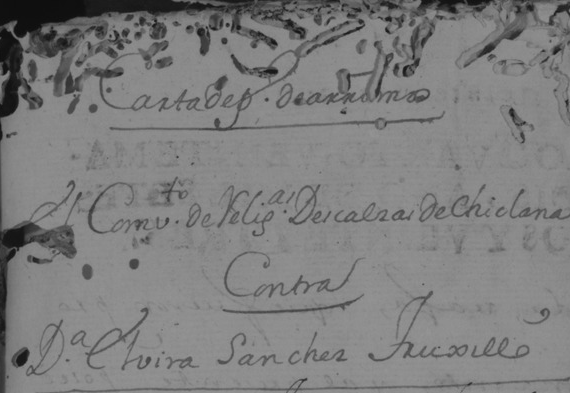 Carta de p. de arrimo
El Comv.to de Relig.as Descalzas de Chiclana
Contra
D.a Elvira Sanchez Truxillo